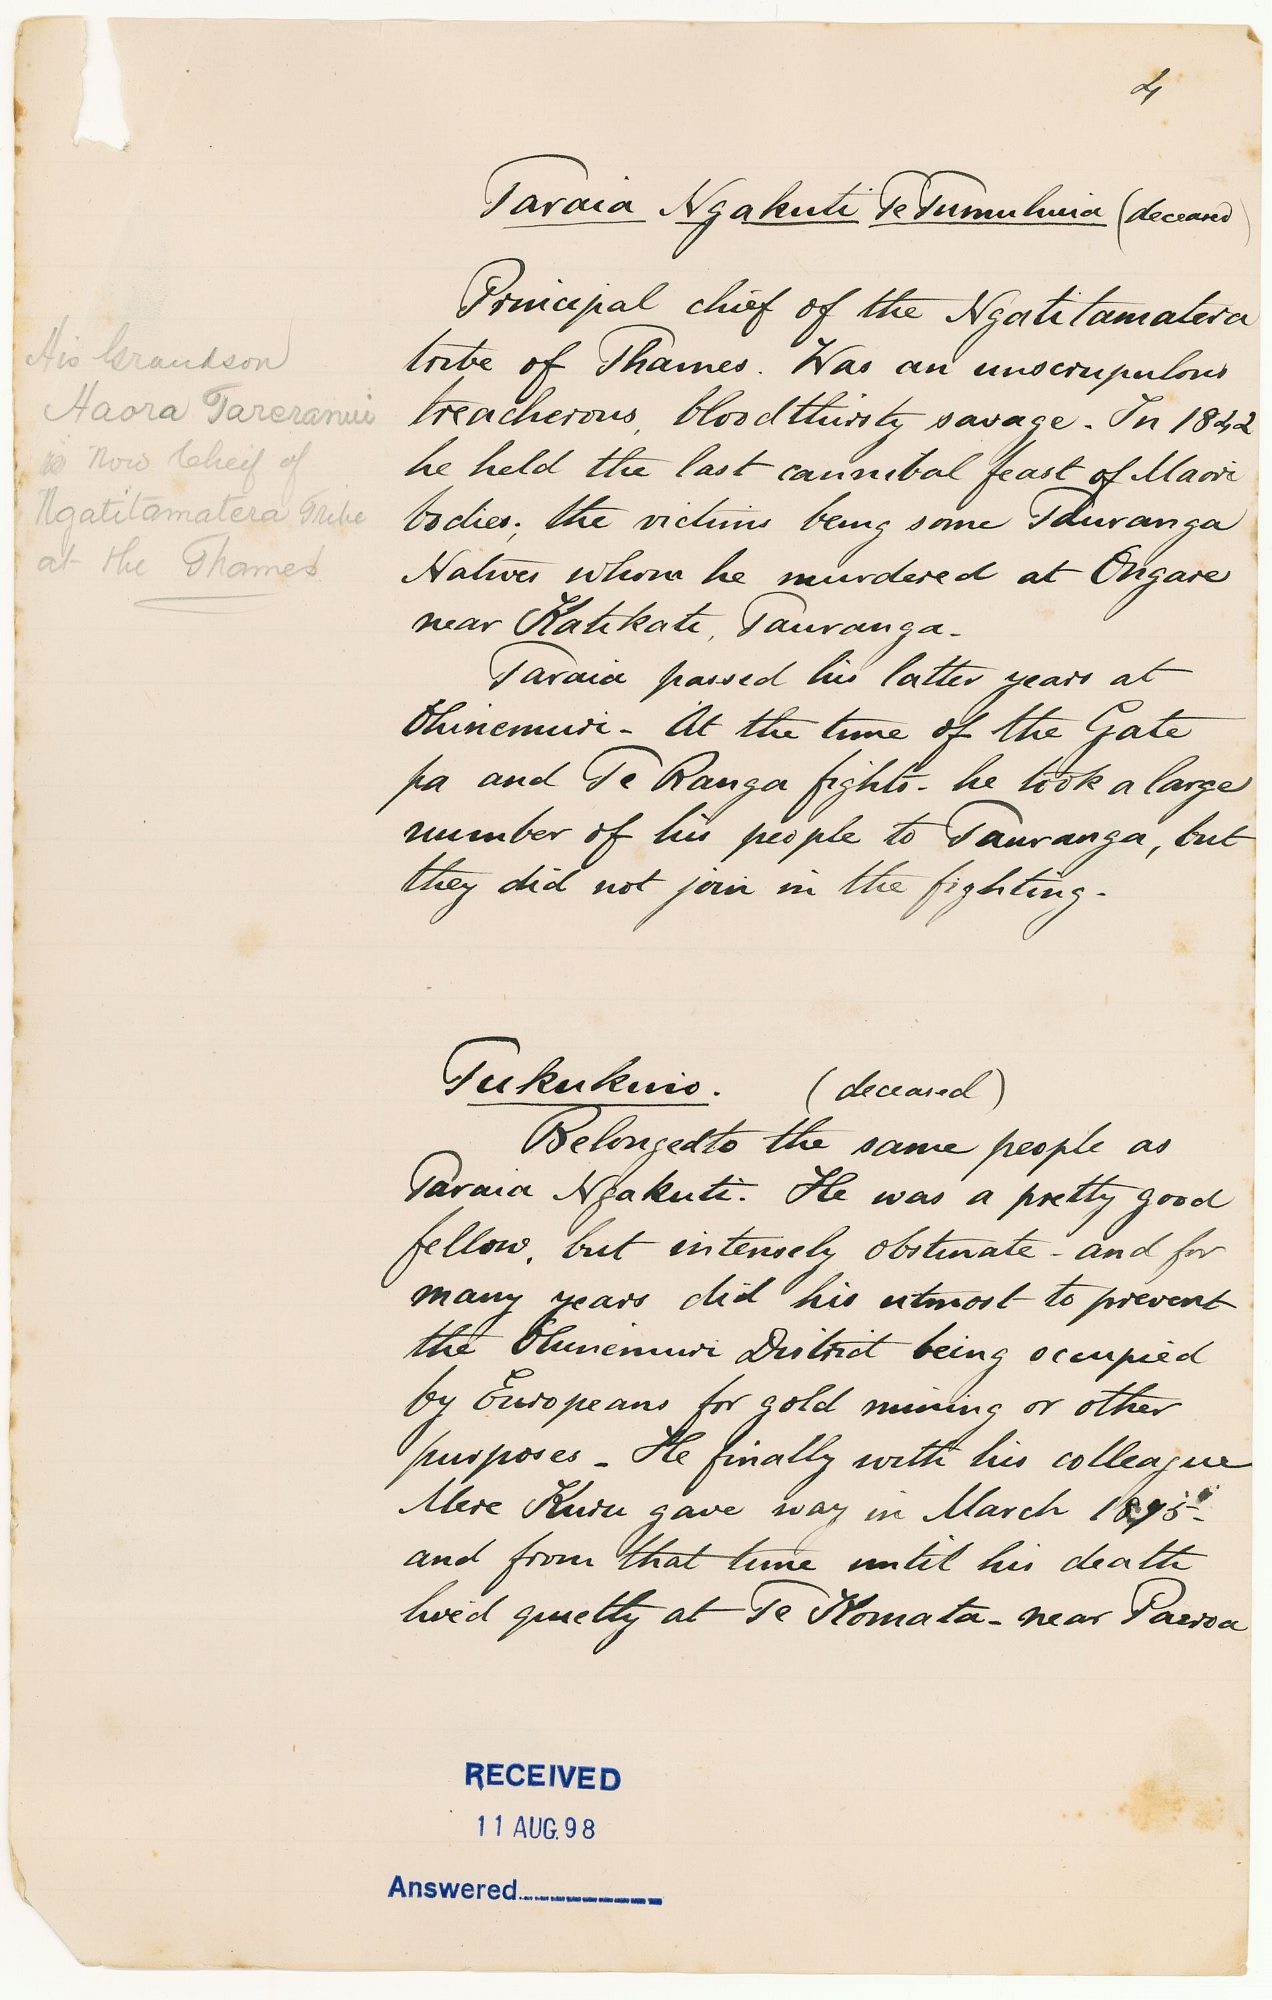 4
Taraia Ngakuti Te Tumuhuia (deceased)
Principal chief of the Ngatitamatera
tribe of Thames. Was an unscrupulous
treacherous, bloodthirsty savage - In 1842
he held the last cannibal feast of Maori
bodies; the victims being some Tauranga
Natives whom he murdered at Ongare
near Katikati, Tauranga -
Taraia passed his latter years at
Ohinemuri - At the time of the Gate
pa and Te Ranga fights - he took a large
number of his people to Tauranga, but
they did not join in the fighting -
His Grandson
Haora Tareranui
is now Cheif of
Ngatitamatera Tribe
at the Thames
Tukukino. (deceased)
Belonged to the same people as
Taraia Ngakuti. He was a pretty good
fellow, but intensely obstinate - and for
many years did his utmost to prevent
the Ohinemuri District being occupied
by Europeans for gold mining or other
purposes - He finally with his colleague
Mere Kuru gave way in March 1875 -
and from that time until his death
lived quietly at Te Komata - near Paeroa
RECEIVED
11 AUG. 98
Answered